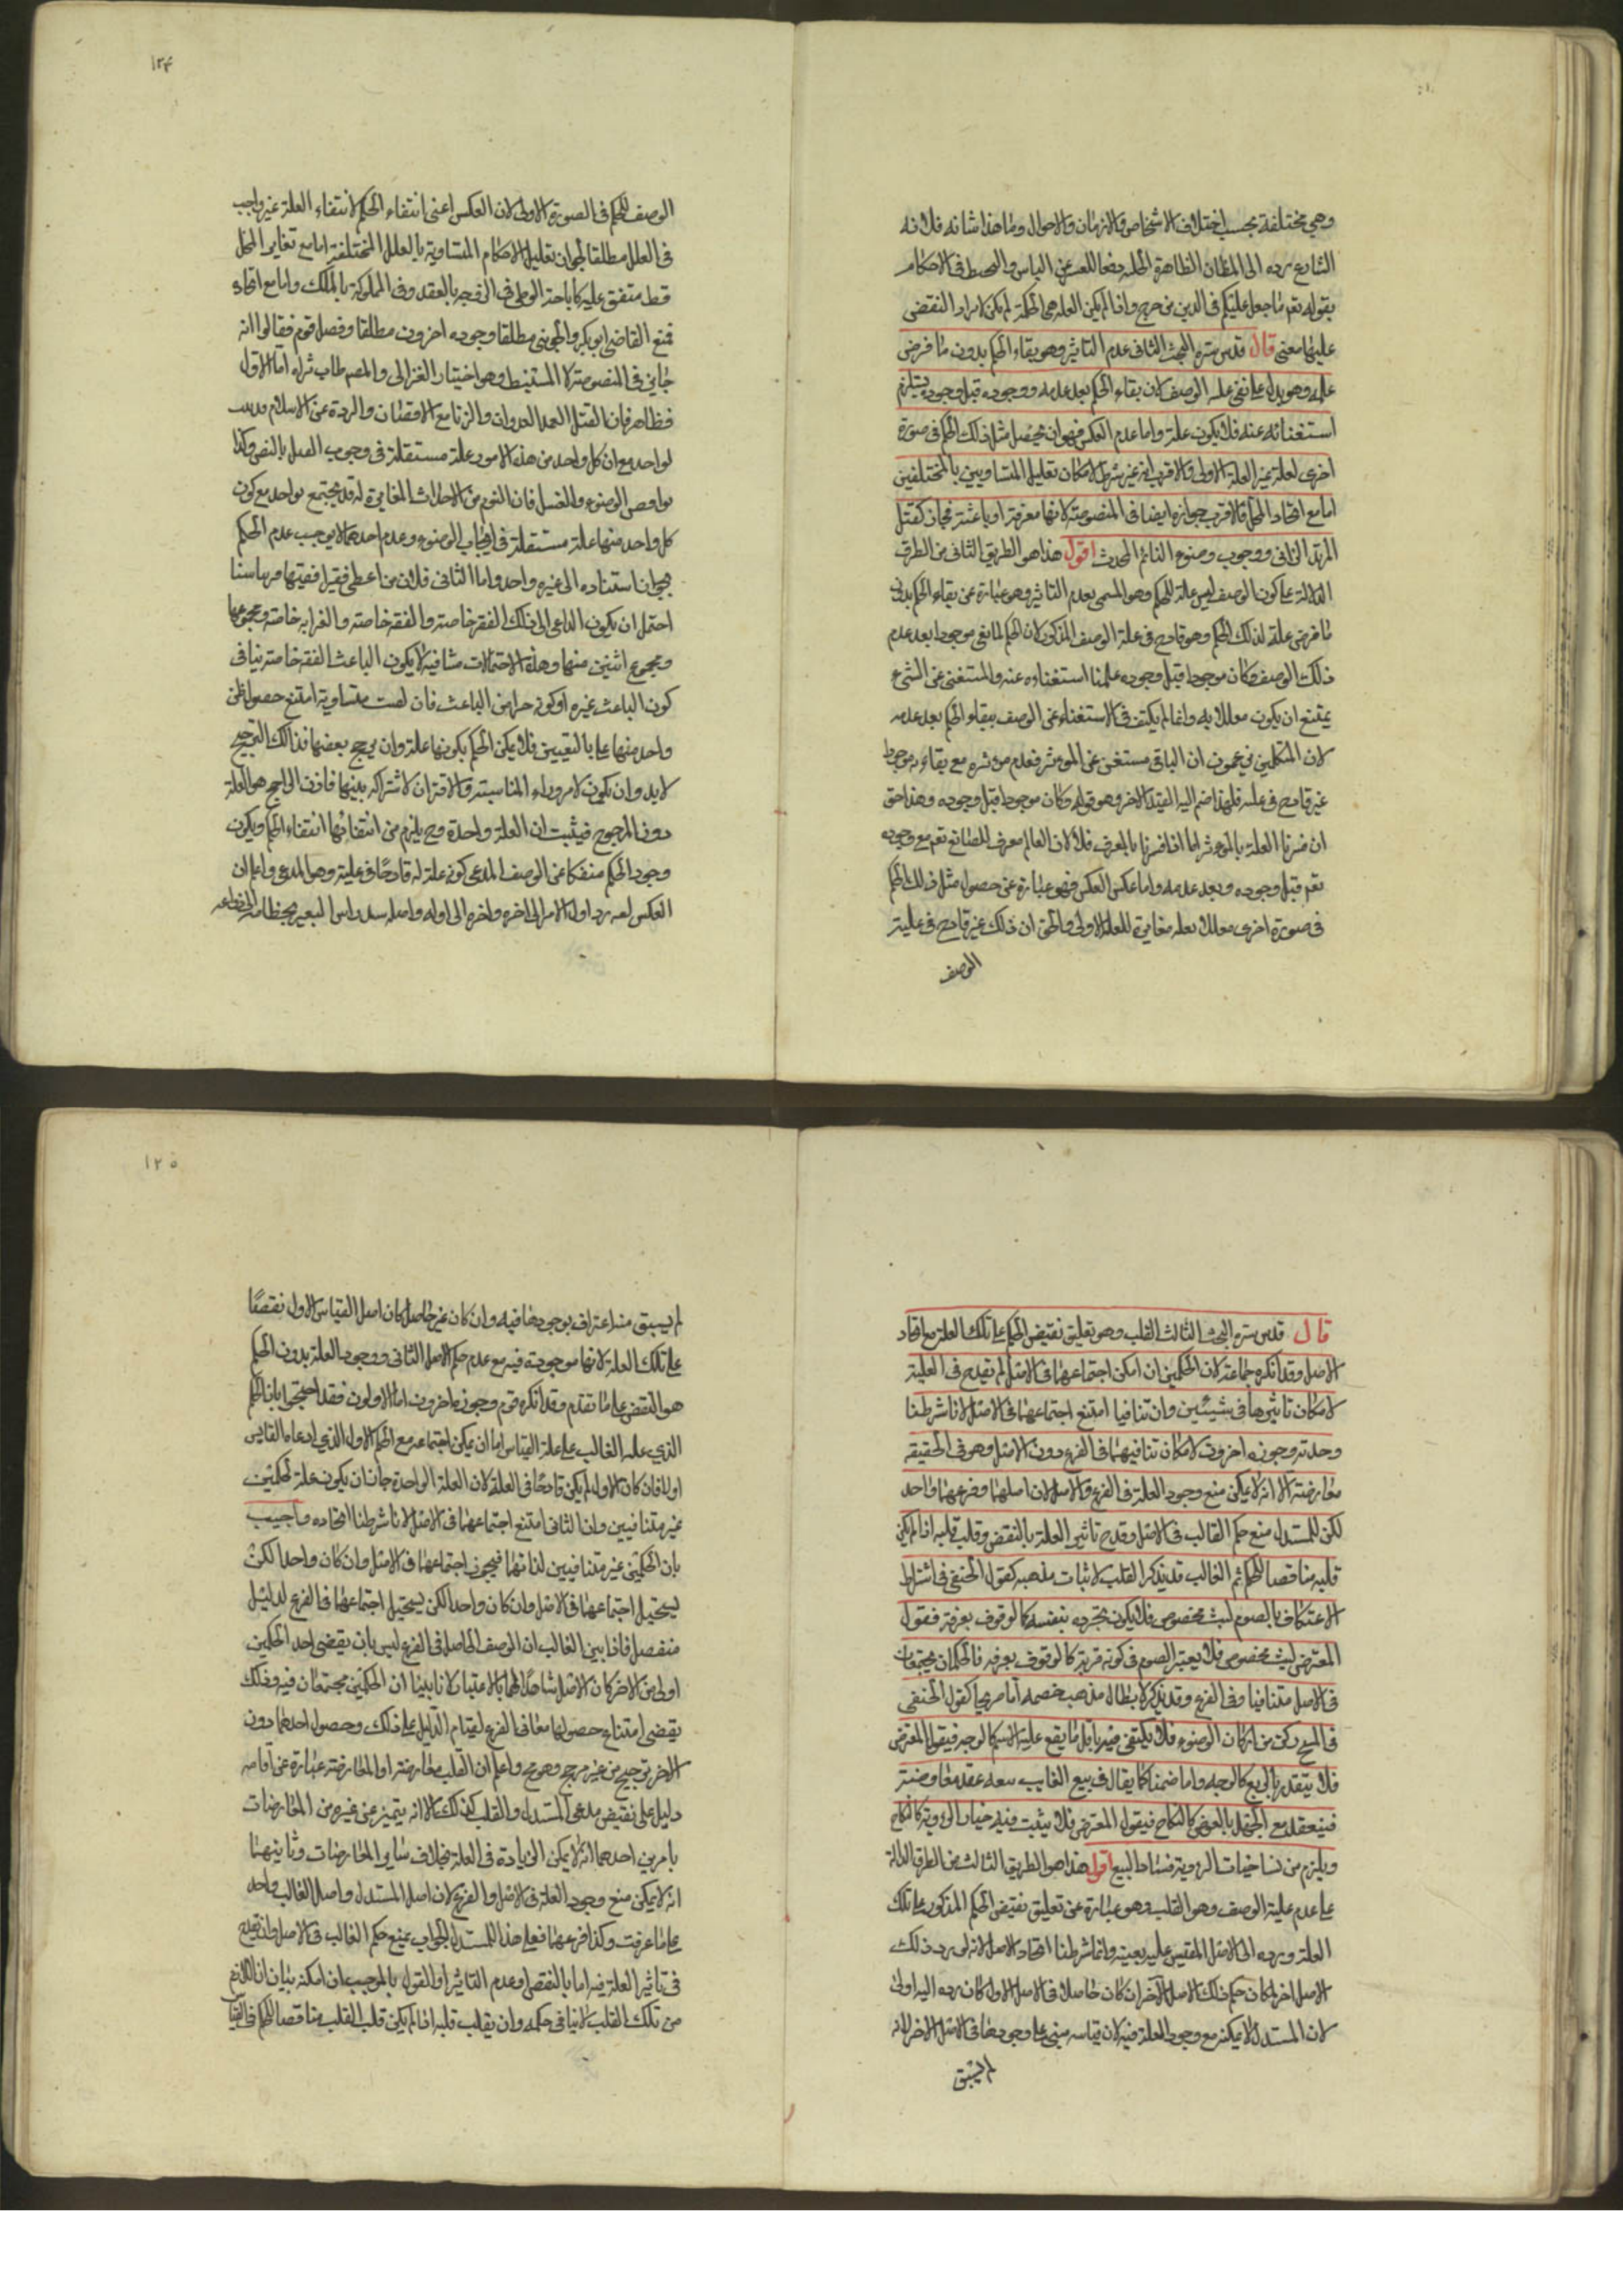 وهي مختلفة بحسب اختلاف الاشخاص والازمان والاحوال وما هذا شانه فلانه
الشارع يرده الى المظان الظاهرة الجلية دفعا للعسر عن الناس والتخبط في الاحكام
بقوله تعم ما جعل عليكم في الدين من حرج واذا لم يكن العلة هي الحكمة لم يكن لايراد النقض
عليها معنى قال قدس سره البحث الثاني عدم التاثير وهو بقاء الحكم بدون ما فرض
علة وهو يدل على نفي علية الوصف لان بقاء الحكم بعد عدمه ووجوده قبل وجوده يستلزم
استغنائه عنه فلا يكون علة واما عدم العكس فهو ان يحصل مثل ذلك الحكم في صورة
اخرى لعلة غير العلة الاولى والاقرب انه غير شرط لامكان تعليل المتساويين بالمختلفين
اما مع اتحاد المحل فالاقرب جوازه ايضا في المنصوصة لانها معرفة او باعثة فجاز كقتل
المرتد الزاني ووجوب وضوء النائم المحدث اقول هذا هو الطريق الثاني من الطرق
الدالة على كون الوصف ليس علة للحكم وهو المسمى بعدم التاثير وهو عبارة عن بقاء الحكم بدون
ما فرض علة لذلك الحكم وهو قادح في علية الوصف المذكور لان الحكم لما بقي موجودا بعد عدم
ذلك الوصف وكان موجودا قبل وجوده علمنا استغناءه عنه والمستغني عن الشيء
يمتنع ان يكون معللا به وانما لم يكتف في الاستغناء عن الوصف ببقاء الحكم بعد عدمه
لان المتكلمين يزعمون ان الباقي مستغن عن الموثر فعدم موثره مع بقاءه موجودا
غير قادح في عليته فلهذا ضم اليه القيد الاخر وهو قوله وكان موجودا قبل وجوده وهذا حق
ان فسرنا العلة بالموثر اما اذا فسرنا بالمعرف فلا لان العالم معرف للصانع تعم مع وجوده
تعم قبل وجوده وبعد عدمه واما عكس العكس فهو عبارة عن حصول مثل ذلك الحكم
في صورة اخرى معللا بعلة مغايرة للعلة الاولى والحق ان ذلك غير قادح في علية
الوصف
١٢٤
الوصف للحكم في الصورة الاولى لان العكس اعني انتفاء الحكم لانتفاء العلة غير واجب
في العلل مطلقا لجواز تعليل الاحكام المتساوية بالعلل المختلفة اما مع تغاير المحل
فقط متفق عليه كاباحة الوطي في الزوجة بالعقد وفي المملوكة بالملك واما مع اتحاده
فمنع القاضي ابو بكر والجويني مطلقا وجوده اخرون مطلقا وفصل قوم فقالوا انه
جايز في المنصوصة لا المستنبط وهو اختيار الغزالي والمصم طاب ثراه اما الاول
فظاهر فان القتل العمد العدوان والزنا مع الاحصان والردة عن الاسلام
لواحد مع ان كل واحد من هذه الامور علة مستقلة في وجوب القتل بالنص وكذا
نواقض الوضوء والغسل فان النوم من الاحداث المغايرة له قد يجتمع لواحد مع كون
كل واحد منها علة مستقلة في ايجاب الوضوء وعدم احدهما لا يوجب عدم الحكم
بجواز استناده الى غيره واحد واما الثاني فلان من اعطى فقيرا فقيها قريبا سنا
احتمل ان يكون الداعي الى ذلك الفقر خاصة والفقه خاصة والقرابة خاصة ومجموعها
ومجموع اثنين منها وهذه الاحتمالات متنافية لا يكون الباعث الفقه خاصة ينافي
كون الباعث غيره او كونه جزا من الباعث فان لبست متساوية امتنع حصول ظن
واحد منها على التعيين فلا يمكن الحكم بكونها علة وان يرجح بعضها فذالك الترجيح
لا بد وان يكون لامر وراء المناسبة والاقتران لاشتراكه بينها فاذن الراجح هو العلة
دون المرجوح فيثبت ان العلة واحدة وح يلزم من انتفائها انتفاء الحكم ويكون
وجود الحكم منفكا عن الوصف المدعى كونه علة له قادحا في عليته وهو المدعى واعلم ان
العكس لغة رد اول الامر الى اخره واخره الى اوله واصله شد راس البعير بخطامه
قال قدس سره البحث الثالث القلب وهو تعليق نقيض الحكم على تلك العلة مع اتحاد
الاصل وقد انكره جماعة لان الحكمين ان امكن اجتماعهما في الاصل لم يقدح في العلية
لامكان تاثيرها في شيئين وان تنافيا امتنع اجتماعهما في الاصل لانا شرطنا
وحدته وجوزه اخرون لامكان تنافيهما في الفرع دون الاصل وهو في الحقيقة
معارضة الا انه لا يمكن منع وجود العلة في الفرع والاصل لان اصلهما وفرعهما واحد
لكن للمستدل منع حكم القالب في الاصل وقدح تاثير العلة بالنقض وقلب قلبه اذا لم يكن
قلبه مناقضا للحكم ثم القالب قد يذكر القلب لاثبات مذهبه كقول الحنفي في اشتراط
الاعتكاف بالصوم لبث مخصوص فلا يكون بمجرده بنفسه كالوقوف بعرفة فيقول
المعترض لبث مخصوص فلا يعتبر الصوم في كونه قربة كالوقوف بعرفة فالحكمان مجتمعان
في الاصل متنافيا وفي الفرع وقد يذكر لابطال مذهب خصمه اما صريحا كقول الحنفي
في المسح ركن من اركان الوضوء فلا يكتفى فيه باقل ما يقع عليه الاسم كالوجه فيقول المعترض
فلا يتقدر بالربع كالوجه واما ضمنا كما يقال في بيع الغايب عقد معاوضة
فينعقد مع الجهل بالعوض كالنكاح فيقول المعترض فلا يثبت فيه خيار الرؤية كالنكاح
ويلزم من فساد خيار الروية فساد البيع اقول هذا هو الطريق الثالث من الطرق الدالة
على عدم علية الوصف وهو القلب وهو عبارة عن تعليق نقيض الحكم المذكور على تلك
العلة ورده الى الاصل المقيس عليه بعينه وانما شرطنا اتحاد الاصل لانه لو رد ذلك
الاصل اخر لكان حكم ذلك الاصل الآخر ان كان حاصلا في الاصل الاول كان رده اليه اولى
لان المستدل لا يمكنه منع وجود العلة فيه لان قياسه مبني على وجودها في الاصل الاخر لانه
لم يسبق
١٢٥
لم يسبق منه اعتراف بوجودها فيه وان كان غير حاصل كان اصل القياس الاول نقضا
على تلك العلة لانها موجودة فيه مع عدم حكم الاصل الثاني ووجود العلة بدون الحكم
هو النقض على ما تقدم وقد انكره قوم وجوزه اخرون اما الاولون فقد احتجوا بان الحكم
الذي علقه القالب على علة القياس اما ان يمكن اجتماعه مع الحكم الاول الذي ادعاه القايس
اولا فان كان الاول لم يكن قادحا في العلة لان العلة الواحدة جاز ان يكون علة لحكمين
غير متنافيين وان الثاني امتنع اجتماعهما في الاصل لانا شرطنا اتحاده واجيب
بان الحكمين غير متنافيين لذاتهما فيجوز اجتماعهما في الاصل وان كان واحدا لكن
يستحيل اجتماعهما في الاصل وان كان واحدا لكن يستحيل اجتماعهما في الفرع لدليل
منفصل فاذا بين القالب ان الوصف الحاصل في الفرع ليس بان يقتضي احد الحكمين
اولى من الاخر كان الاصل شاهدا لهما بالاعتبار لانا بينا ان الحكمين مجتمعان فيه وذلك
يقتضي امتناع حصولهما معا في الفرع لقيام الدليل على ذلك وحصول احدهما دون
الاخر ترجيح من غير مرجح وهو مح واعلم ان القلب معارضة اذ المعارضة عبارة عن اقامة
دليل على نقيض مدعى المستدل والقلب كذلك الا انه يتميز عن غيره من المعارضات
بامرين احدهما انه لا يمكن الزيادة في العلة بخلاف ساير المعارضات وثانيهما
انه لا يمكن منع وجود العلة في الاصل والفرع لان اصل المستدل واصل القالب واحد
على ما عرفت وكذا فرعهما فعلى هذا للمستدل الجواب بمنع حكم القالب في الاصل وان يقدح
في تاثير العلة فيه اما بالنقض وعدم التاثير او القول بالموجب ان امكنه بيان ان اللازم
من تلك القلب لا ينافي حكمه وان يقلب قلبه اذا لم يكن قلب القلب مناقضا للحكم في